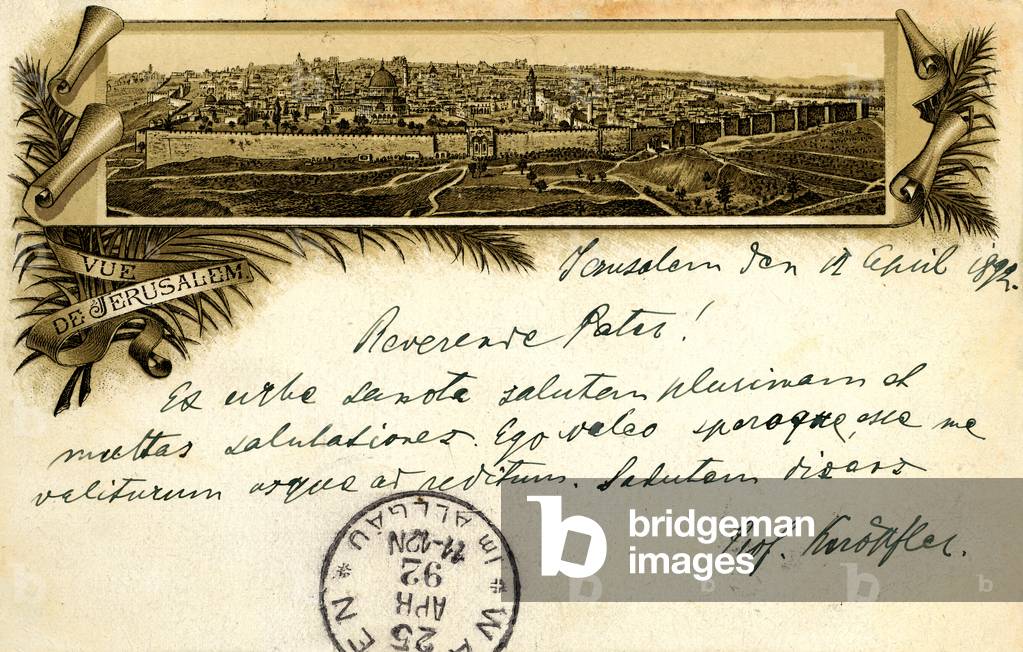 VUE
DE JERUSALEM.
Jerusalem den 12 April 1892.
Reverende Pater!
Ex urbe sancta salutem plurimam et
multas salutationes. Ego valeo speroque, esse me
valiturum usque ad reditum. Salutem dicens
Prof.
WA EN * Im ALLGÄU *
25
APR
92
11-12N
bridgeman
images